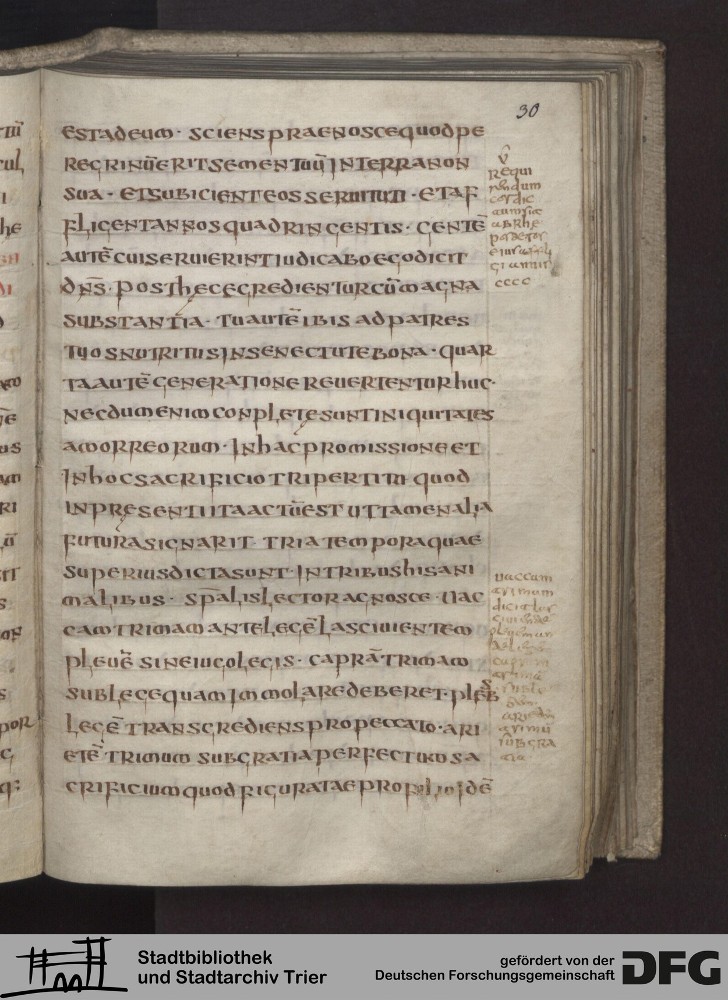 30
EST AD EUM · SCIENS PRAENOSCE QUOD PE
REGRINŪ ERIT SEMEN TUŪ IN TERRA NON
SUA · ET SUBICIENT EOS SERUITUTI · ET AF
FLIGENT ANNOS QUADRINGENTIS · GENTĒ
AUTĒ CUI SERUIERINT IUDICABO EGO DICIT
DN̄S · POST HEC EGREDIENTUR CŪ MAGNA
SUBSTANTIA · TU AUTĒ IBIS AD PATRES
TUOS NUTRITUS IN SENECTUTE BONA · QUAR
TA AUTĒ GENERATIONE REUERTENTUR HUC ·
NECDUM ENIM CONPLETE SUNT INIQUITATES
AMORREORUM · IN HAC PROMISSIONE ET
IN HOC SACRIFICIO TRIPERTITO QUOD
IN PRESENTI ITA ACTŪ EST UT TAMEN ALIA
FUTURA SIGNARIT · TRIA TEMPORA QUAE
SUPERIUS DICTA SUNT · IN TRIBUS HIS ANI
MALIBUS · SP̄ALIS LECTOR AGNOSCE · UAC
CAM TRIMAM ANTE LEGĒ LASCIUIENTEM
PLEUĒ SINE IUGO LEGIS · CAPRĀ TRIMAM
SUB LEGE QUAM IMMOLARE DEBERET · PLEBS
LEGĒ TRANSGREDIENS PRO PECCATO · ARI
ETĒ TRIMUM SUB GRATIA PERFECTUM SA
CRIFICIUM QUOD FIGURATAE PRO FILIO IDĒ
requi
cccc
uaccam
trimum
Stadtbibliothek
und Stadtarchiv Trier
gefördert von der
Deutschen Forschungsgemeinschaft
DFG